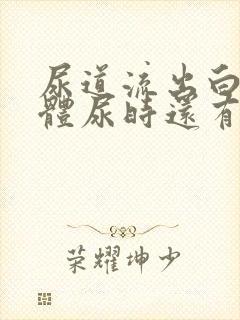 尿道流出白
體尿時還有
荣耀坤少